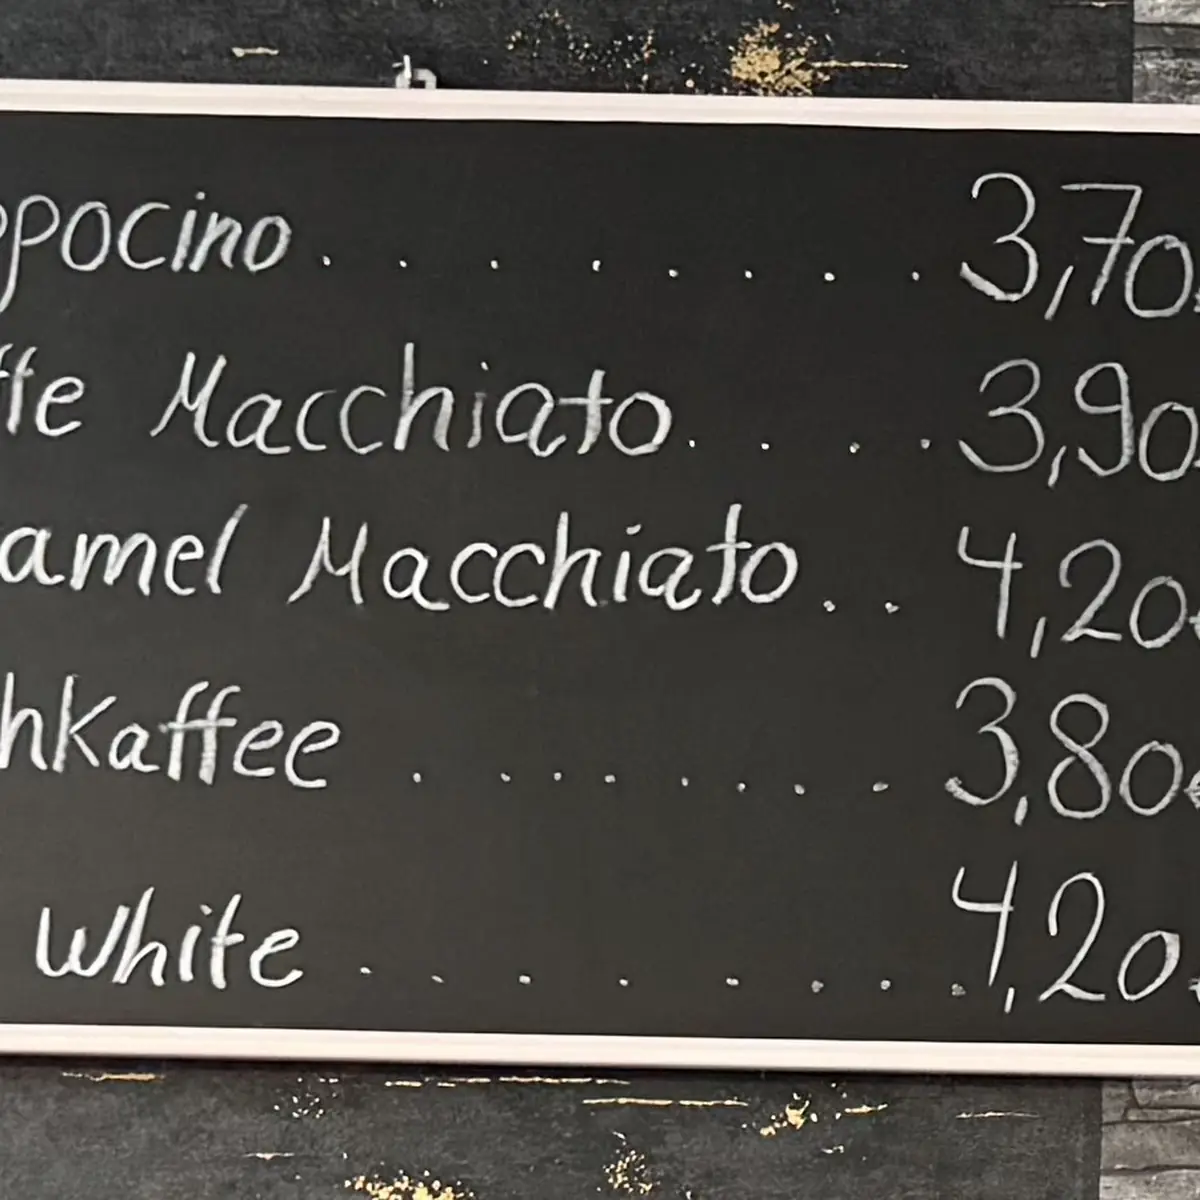 ppocino . . . . . . . . 3,70
ffe Macchiato . . . . 3,90
amel Macchiato . . 4,20€
hkaffee . . . . . . . . 3,80€
White . . . . . . . . 4,20€